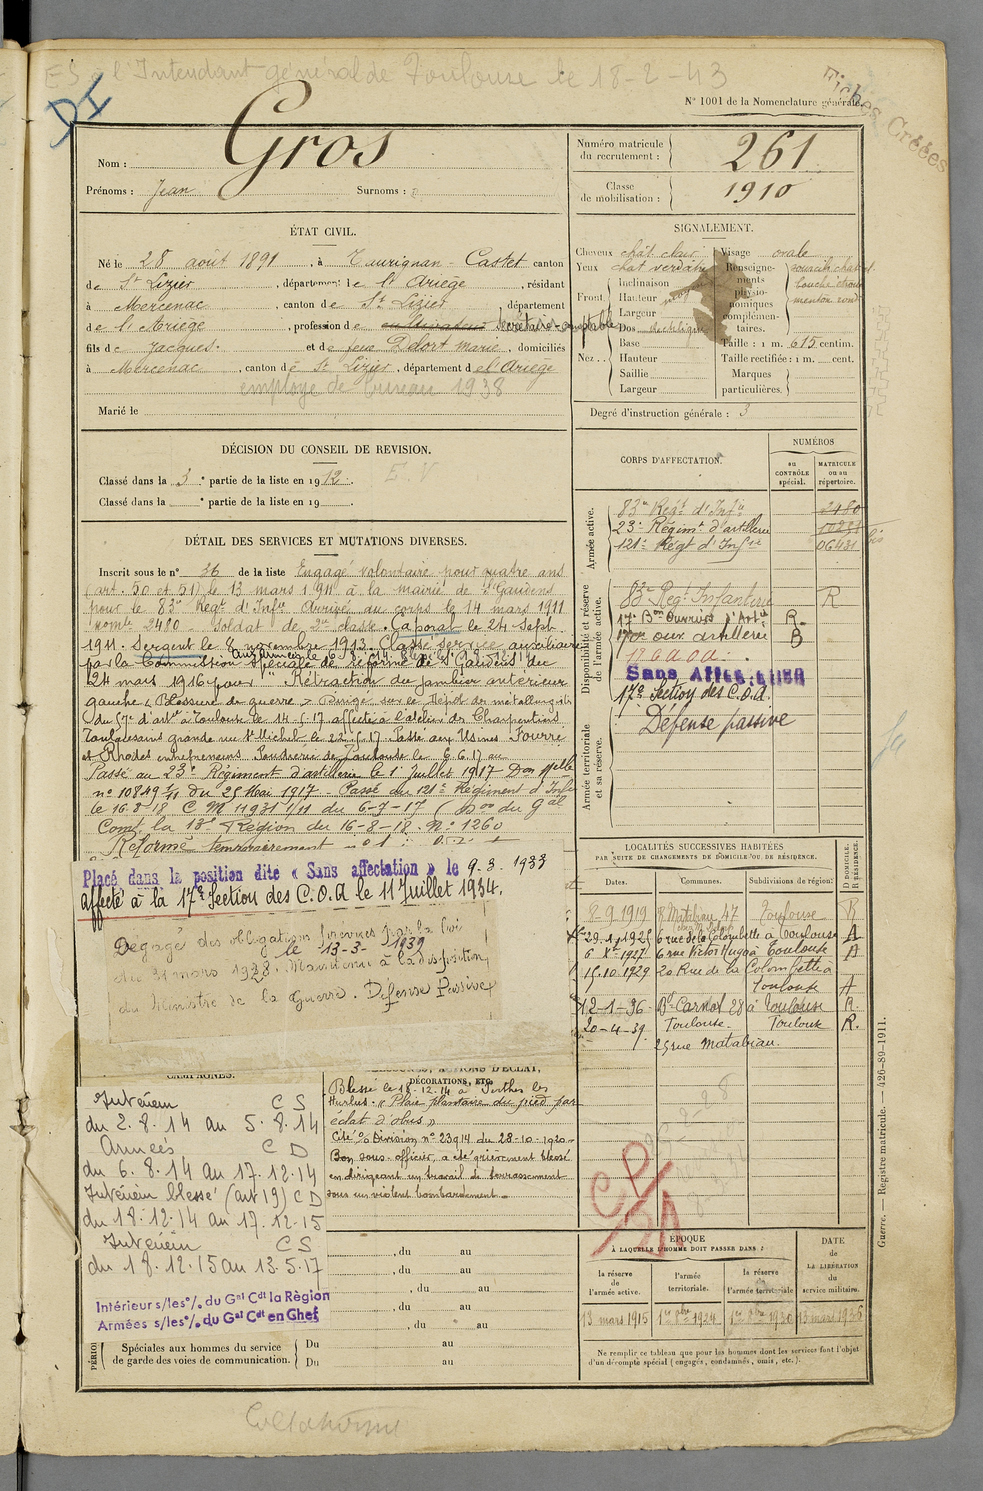 ES à l'Intendant général de Toulouse le 18-2-43
DI
N° 1001 de la Nomenclature générale.
Fiches Créées
Nom : Gros
Prénoms : Jean Surnoms :
Numéro matricule du recrutement : 261
Classe de mobilisation : 1910
ÉTAT CIVIL.
Né le 28 août 1891, à Taurignan-Castet canton
de St Lizier, département de l'Ariège, résidant
à Mercenac, canton de St Lizier, département
de l'Ariège, profession de cultivateur secrétaire-comptable
fils de Jacques et de feue Ddort Marie, domiciliés
à Mercenac, canton de St Lizier, département de l'Ariège
employé de bureau 1938
Marié le
SIGNALEMENT.
Cheveux chât clair Visage ovale
Yeux chat verdâtre
Renseignements physionomiques complémentaires.
Front Inclinaison
Hauteur moy
Largeur
Nez Dos rectiligne
Base
Hauteur
Saillie
Largeur
Taille : 1 m. 615 centim.
Taille rectifiée : 1 m. cent.
Marques particulières.
Degré d'instruction générale : 3
DÉCISION DU CONSEIL DE REVISION.
Classé dans la 3e partie de la liste en 1912. E.V
Classé dans la e partie de la liste en 19 .
CORPS D'AFFECTATION.
NUMÉROS
au CONTRÔLE spécial.
MATRICULE ou au répertoire.
Armée active.
83e Régt d'Infie 2480
23e Régimt d'artillerie
121e Régt d'Infrie 06431 bis
Disponibilité et réserve de l'armée active.
83e Régt Infanterie R
17e Bon Ouvriers d'Artie R.
17e ouv artillerie B
Sans Affectation
17e Section des C.O.A.
Défense passive
Armée territoriale et sa réserve.
DÉTAIL DES SERVICES ET MUTATIONS DIVERSES.
Inscrit sous le n° 36 de la liste Engagé volontaire pour quatre ans
(art. 50 et 51) le 13 mars 1911 à la mairie de St Gaudens
pour le 83e Régt d'Infie Arrivé au corps le 14 mars 1911
nomte 2480 Soldat de 2e classe. Caporal le 24 Sept
1911. Sergent le 8 novembre 1913. Classé service auxiliaire
par la Commission spéciale de Réforme de St Gaudens du
24 mars 1916 pour "Rétraction du jambier antérieur
gauche" Blessure de guerre. Dirigé sur le Dépôt de métallurgistes
du 57e d'artie à Toulouse le 14.5.17 affecté à l'atelier de Charpentiers
Toulousains grande rue St Michel le 22.5.17. Passé aux Usines Fourré
et Rhodes entrepreneurs Poudrerie de Toulouse le 6.6.17 au
Passé au 23e Régiment d'artillerie le 1er Juillet 1917 Don Melle
n° 10849 du 25 Mai 1917 - Passé au 121e Régiment d'Infie
le 16-8-18 C M 11931 1/11 du 6-7-17 (Don du Gal
Comt la 18e Région du 16-8-18. N° 1260
Réformé temporairement n° 1
Placé dans la position dite « Sans affectation » le 9.3.1933
affecté à la 17e Section des C.O.A le 11 Juillet 1934.
Dégagé des obligations prévues par la loi
du 31 mars 1928. le 13-3-1939 Maintenu à la disposition
du Ministre de la Guerre. Défense Passive
LOCALITÉS SUCCESSIVES HABITÉES
PAR SUITE DE CHANGEMENTS DE DOMICILE OU DE RÉSIDENCE.
Dates. Communes. Subdivisions de région. D DOMICILE. R RÉSIDENCE.
8-9-1919 R. Matabiau 47 Toulouse R
29.1.1925 6 rue de la Colombette à Toulouse A
6 Xe 1927 6 rue Victor Hugo à Toulouse A
15.10.1929 20 Rue de la Colombette à Toulouse A
12-1-36 Bd Carnot 28 à Toulouse R.
20-4-39 Toulouse. Toulouse R.
25 rue Matabiau.
CAMPAGNES.
Intérieur CS
du 2.8.14 au 5.8.14
Armées CD
du 6.8.14 au 17.12.14
Intérieur blessé (art 19) CD
du 18.12.14 au 17.12.15
Intérieur CS
du 18.12.15 au 13.5.17
Intérieur s/les °/. du Gal Cdt la Région
Armées s/les °/. du Gal Cdt en Chef
BLESSURES, ACTIONS D'ÉCLAT, DÉCORATIONS, ETC.
Blessé le 18-12.14 à Perthes les
Hurlus. « Plaie plantaire du pied par
éclat d'obus »
Cité °/o Division n° 23914 du 28-10-1920 -
Bon sous-officier, a été grièvement blessé
en dirigeant un travail de terrassement
sous un violent bombardement.
, du au
, du au
, du au
, du au
, du au
Spéciales aux hommes du service de garde des voies de communication.
Du au
Du au
ÉPOQUE
À LAQUELLE L'HOMME DOIT PASSER DANS :
la réserve de l'armée active.
l'armée territoriale.
la réserve de l'armée territoriale
DATE de LA LIBÉRATION du service militaire.
13 mars 1915 1er 8bre 1924 1er 8bre 1930 13 mars 1936
Ne remplir ce tableau que pour les hommes dont les services font l'objet d'un décompte spécial (engagés, condamnés, omis, etc.).
Guerre. — Registre matricule. — 426-89-1911.